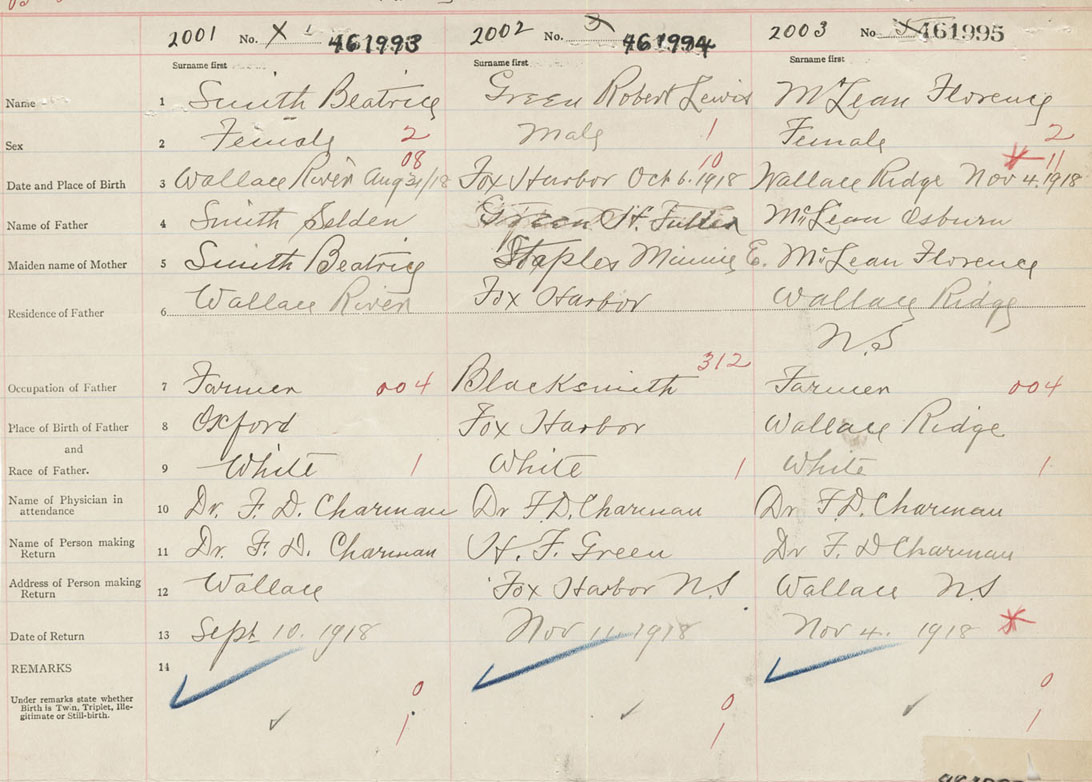 2001 No. X 461993 2002 No. 461994 2003 No. 461995
Surname first Surname first Surname first
Name 1 Smith Beatrice Green Robert Lewis McLean Florence
Sex 2 Female 2 Male 1 Female 2
08 10 11
Date and Place of Birth 3 Wallace River Aug 31/18 Fox Harbor Oct 6. 1918 Wallace Ridge Nov 4. 1918
Name of Father 4 Smith Selden Green H. Fuller McLean Osburn
Maiden name of Mother 5 Smith Beatrice Staples Minnie E. McLean Florence
Residence of Father 6 Wallace River Fox Harbor Wallace Ridge
N.S
312
Occupation of Father 7 Farmer 004 Blacksmith Farmer 004
Place of Birth of Father 8 Oxford Fox Harbor Wallace Ridge
and
Race of Father. 9 White 1 White 1 White 1
Name of Physician in
attendance 10 Dr. F. D. Charman Dr F.D. Charman Dr F.D. Charman
Name of Person making
Return 11 Dr. F. D. Charman H. F. Green Dr F. D Charman
Address of Person making
Return 12 Wallace Fox Harbor N.S Wallace N.S
Date of Return 13 Sept 10. 1918 Nov 11. 1918 Nov 4. 1918
REMARKS 14
Under remarks state whether
Birth is Twin, Triplet, Ille-
gitimate or Still-birth.
0 0 0
1 1 1